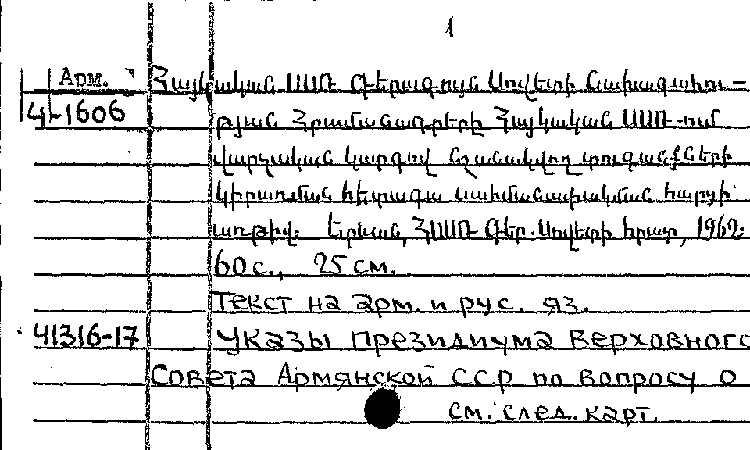 1
Арм. Հայկական ՍՍՌ Գերագույն Սովետի Նախագահու-
4-1606 թյան Հրամանագրերի Հայկական ՍՍՌ-ում
վարչական կարգով նշանակվող տուգանքների
կիրառման հետագա սահմանափակման հարցի
առթիվ: Երևան, ՀՍՍՌ Գեր. Սովետի հրատ, 1962:
60 с., 25 см.
Текст на арм. и рус. яз.
41316-17 Указы президиума Верховного
Совета Армянской ССР по вопросу о
см. след. карт.